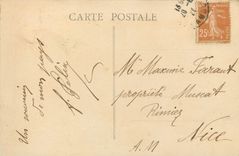 CARTE POSTALE
25
Un souvenir
de mon pays
Mr Maxime Ferraut
propriété Muscat
Cimiez
Nice
A. M